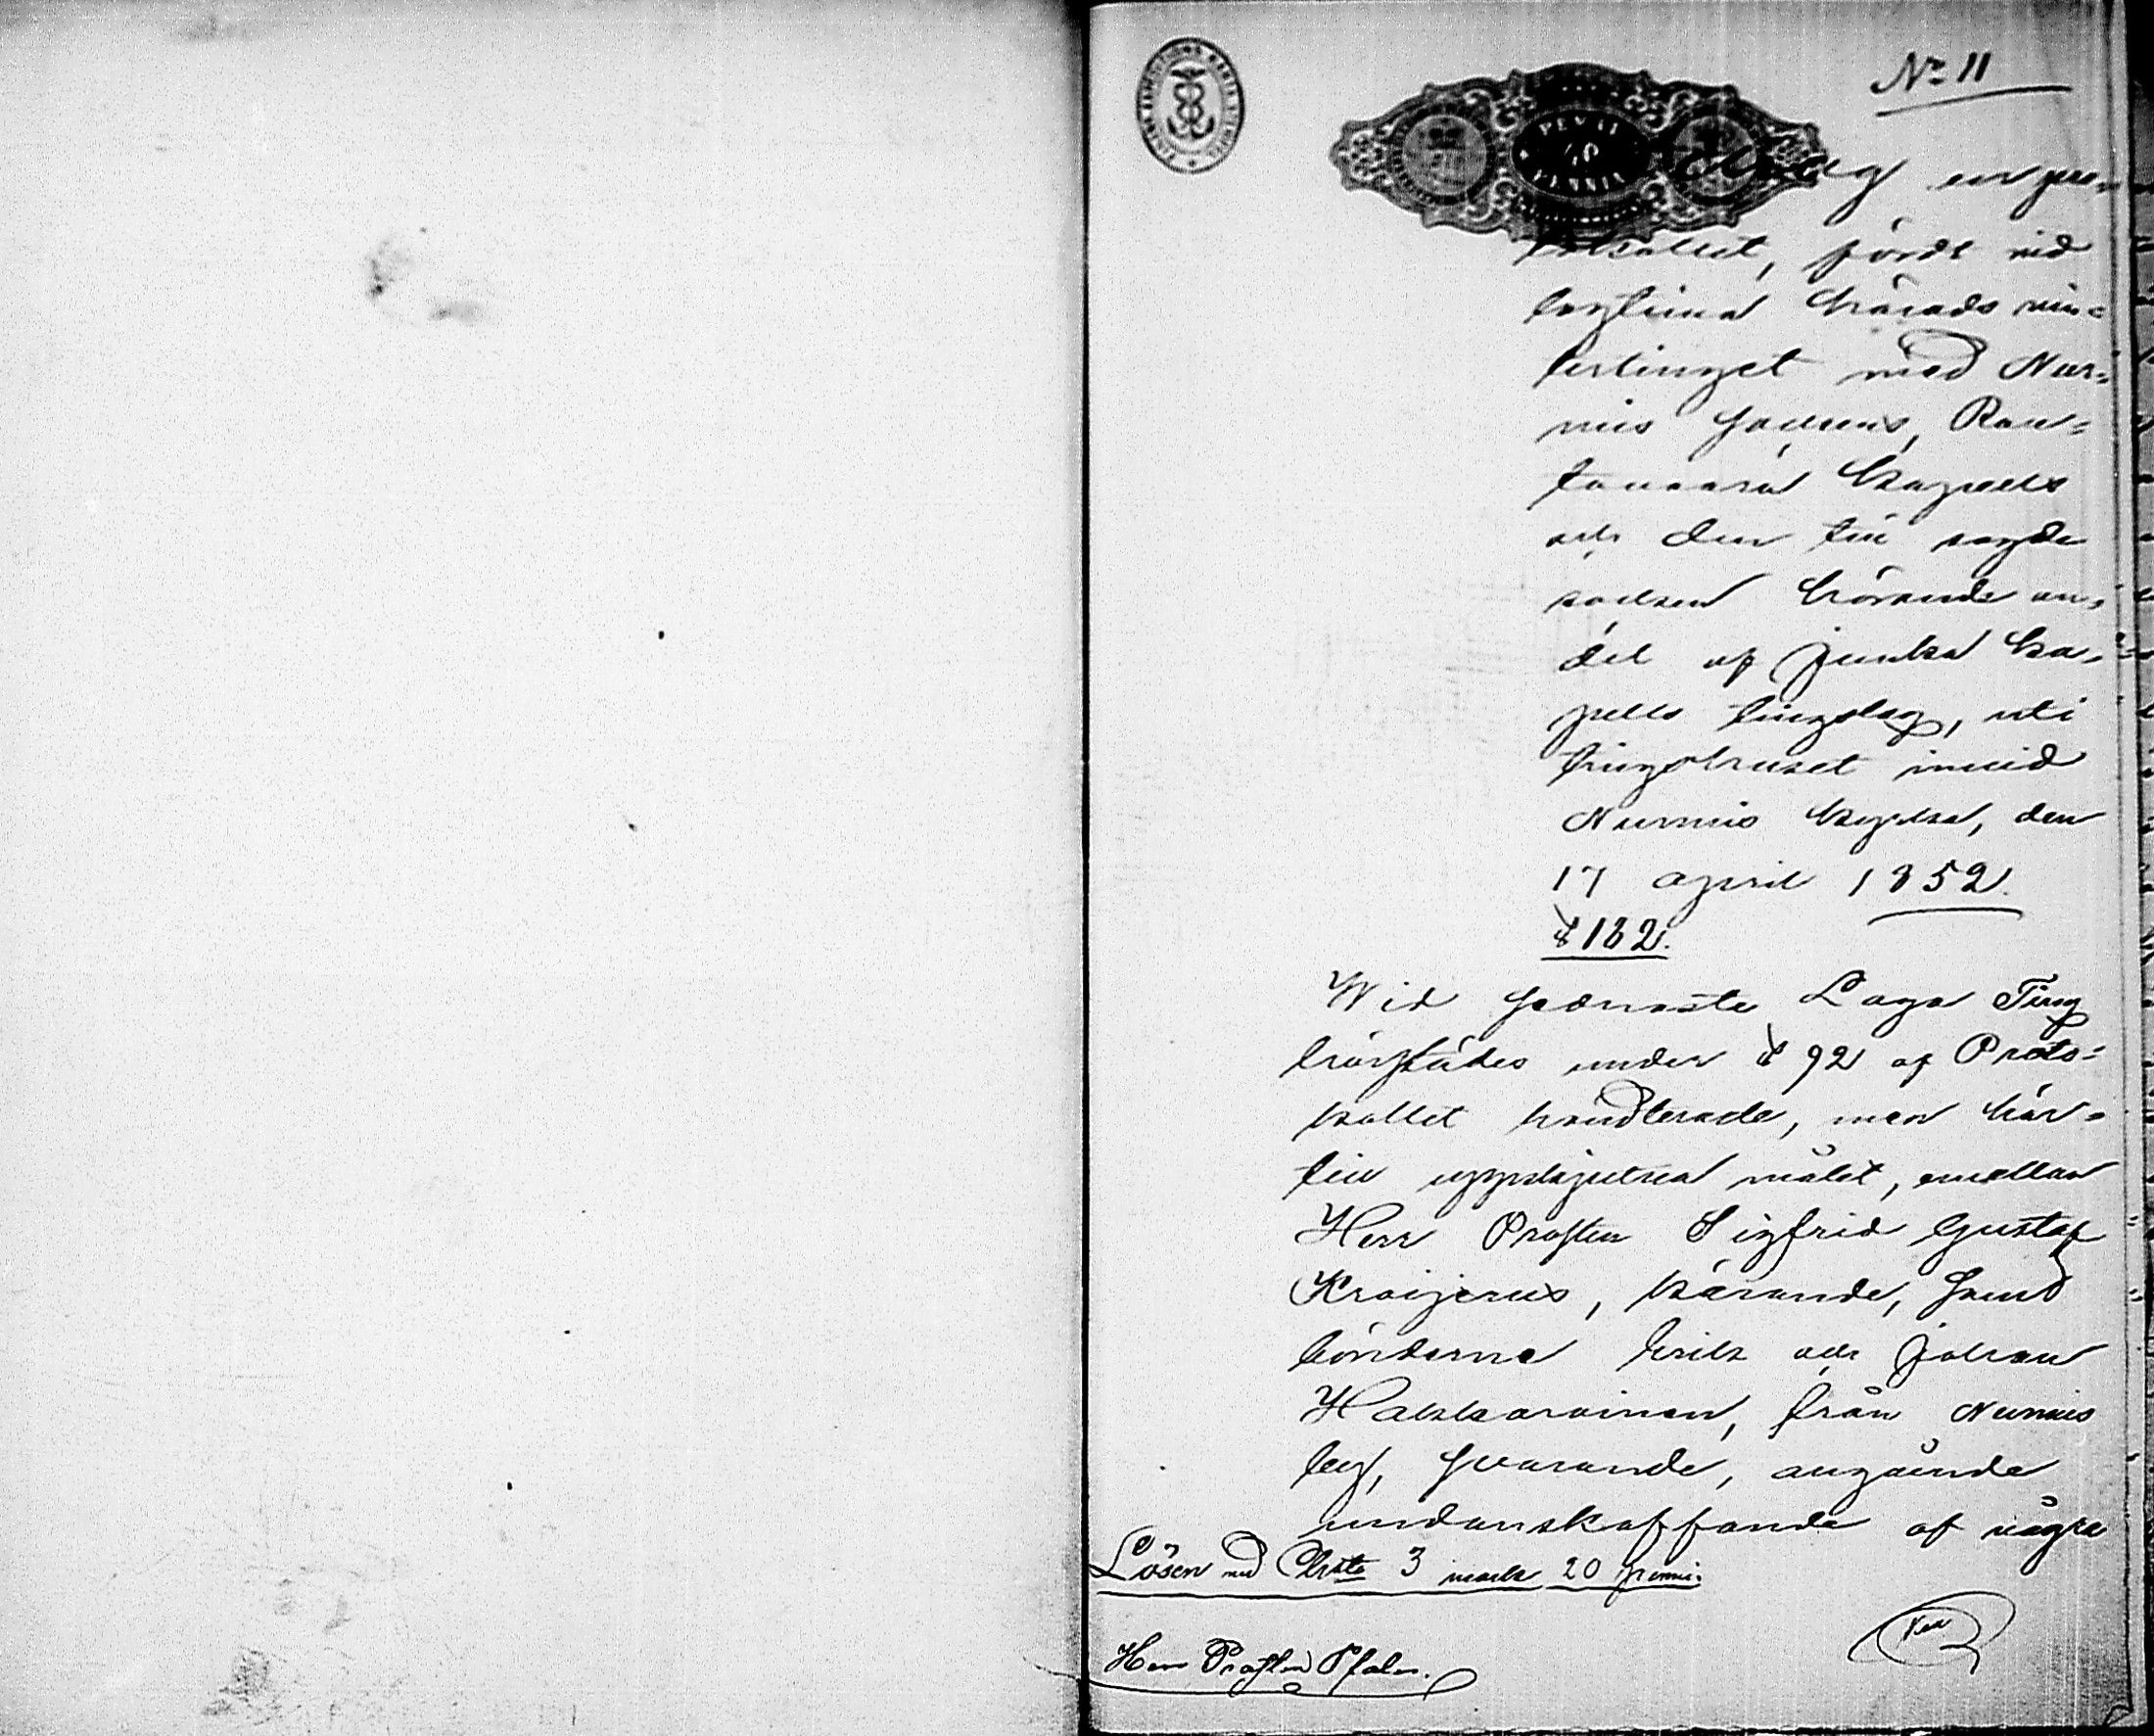 No 11
Utdrag ur pro=
tokollet, fördt vid
lagtima härads vin=
tertinget med Nur=
mis socken, Rau=
tavaara kapells
och den till sagde
socken hörande an=
del af Juuka ka=
pells tingslag, uti
tingshuset invid
Nurmis kyrka, den
17 april 1852.
§ 182.
Wid sednaste Laga Ting
härstädes under § 92 af Proto=
kollet handterade, men här=
till uppskjutna målet, emellan
Herr Prosten Sigfrid Gustaf
Kroijerus, kärande, samt
bönderne Erik och Johan
Hakkarainen, från Nurmis
by, svarande, angående
undanskaffande af några
Lösen med Chta 3 mark 20 penni.
Herr Prosten Pfaler.
PENNI
40